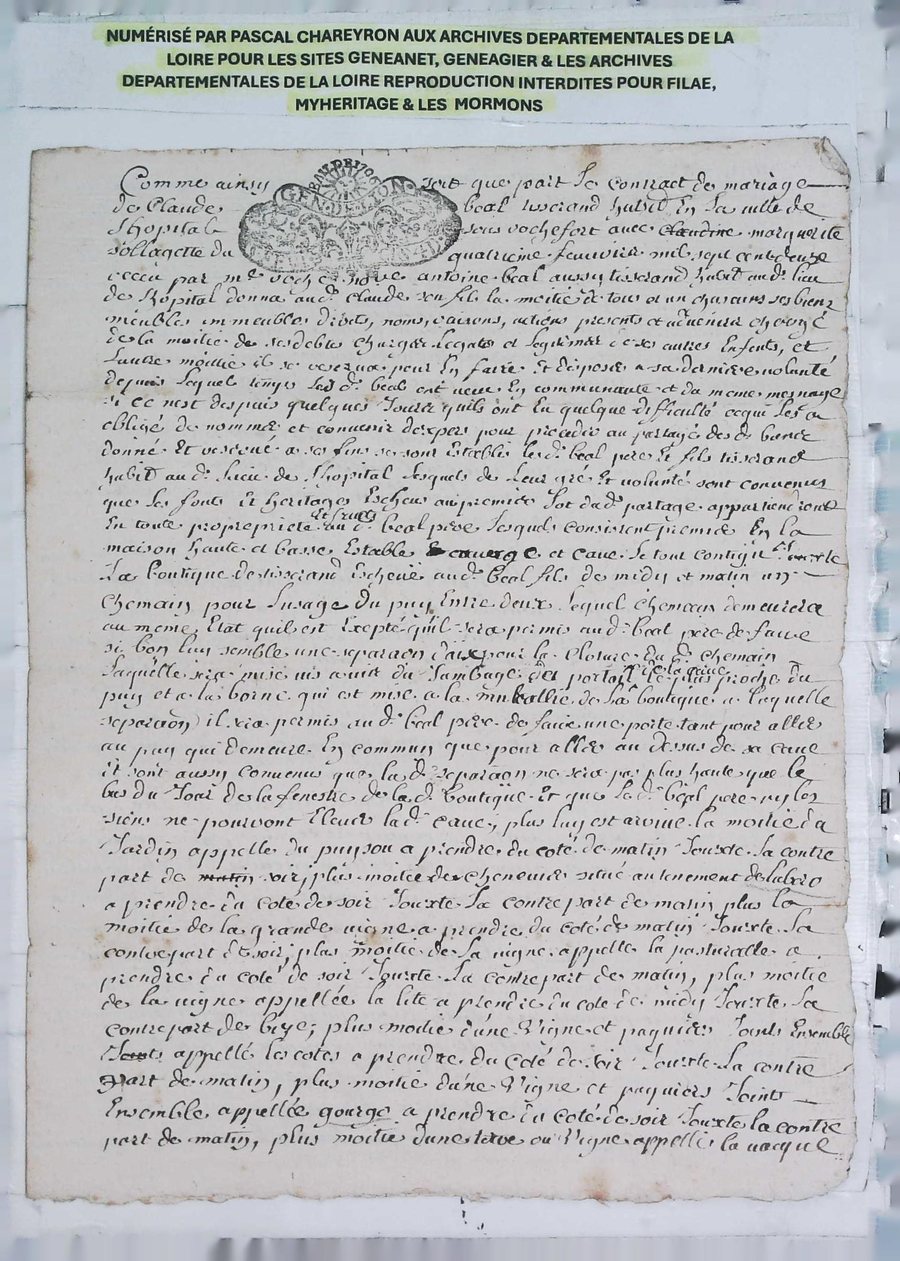 NUMÉRISÉ PAR PASCAL CHAREYRON AUX ARCHIVES DEPARTEMENTALES DE LA
LOIRE POUR LES SITES GENEANET, GENEAGIER & LES ARCHIVES
DEPARTEMENTALES DE LA LOIRE REPRODUCTION INTERDITES POUR FILAE,
MYHERITAGE & LES MORMONS
GEN. DE LYON
Comme ainsy soit que part le contract de mariage
de Claude beal tisserand habit en la ville de
lhopital sous rochefort avec claudine marguerite
sollagette du quatrieme feuvrier mil sept cent douze
receu par me notre antoine beal aussy tisserand habit aud lieu
de lhopital donna aud claude son fils la moitié de tous et un chascuns ses biens
meubles immeubles droits, noms, raisons, actions presents et advenir chargé
de la moitié de ses debtes charges legats et legitimes de ses autres enfents, et
lautre moitié il se reserva pour en faire et disposer a sa derniere volonté
depuis lequel temps lesd beal ont vecu en communauté et du meme mesnage
si ce nest despuis quelques jours quils ont eu quelque difficulté ce qui les a
obligé de nommer et convenir dexpers pour proceder au partage des d biens
donné et reservé a ses fins se sont establis led beal pere et fils tisserand
habit aud lieu de lhopital lesquels de leur gré et volonté sont convenus
que les fonts et heritages escheus au premier lot dud partage appartiendront
en toute propriepriete et fruits aud beal pere lesquels consistent premier en la
maison haute et basse estable et cave le tout contigu jouxte
la boutique de tisserand escheue aud beal fils de midy et matin un
chemain pour lusage du puy entre deux lequel chemain demeurera
au meme etat quil est exepté quil sera permis aud beal pere de faire
si bon luy semble une separaon daix pour la closture dud chemain
laquelle sera mise vis a vis du jambage du portail de la cave le plus proche du
puy et a la borne qui est mise a la muraillie de la boutique a laquelle
separaon il sera permis aud beal pere de faire une porte tant pour aller
au puy qui demeure en commun que pour aller au dessus de sa cave
et sont aussy convenus que lad separaon ne sera pas plus haute que le
bas du jour de la fenestre de lad boutique et que led beal pere ny les
siens ne pourront elever lad cave, plus luy est arrivé la moitié du
jardin appellé du puysou a prendre du coté de matin jouxte la contre
part de matin soir, plus moitié de chenevier situé au tenement de
a prendre du coté de soir jouxte la contrepart de matin plus la
moitié de la grande vigne a prendre du coté de matin jouxte la
contrepart de soir, plus moitié de la vigne appellé la pasturalle a
prendre du coté de soir jouxte la contrepart de matin, plus moitié
de la vigne appellée la lite a prendre du coté de midy jouxte la
contrepart de bize, plus moitié dune vigne et paquier joints ensemble
joints appellé les cotes a prendre du coté de soir jouxte la contre
part de matin, plus moitié dune vigne et paquiers joints
ensemble appellée gourge a prendre du coté de soir jouxte la contre
part de matin, plus moitié dune terre ou vigne appellé la vacque